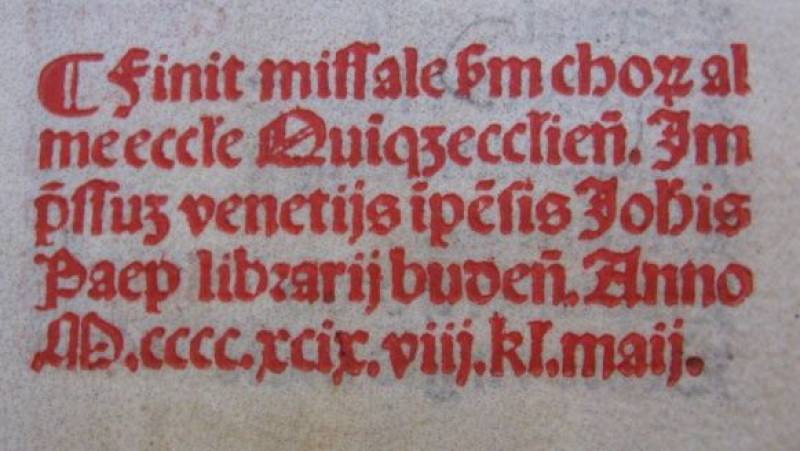 ¶ Finit missale scḍm choꝝ al
me eccl'e Quiqꝫecclien̄. Im
p̄ssuꝫ venetijs īpēsis Joħis
Paep librarij buden̄. Anno
M.cccc.xcix.viij.kl.maij.